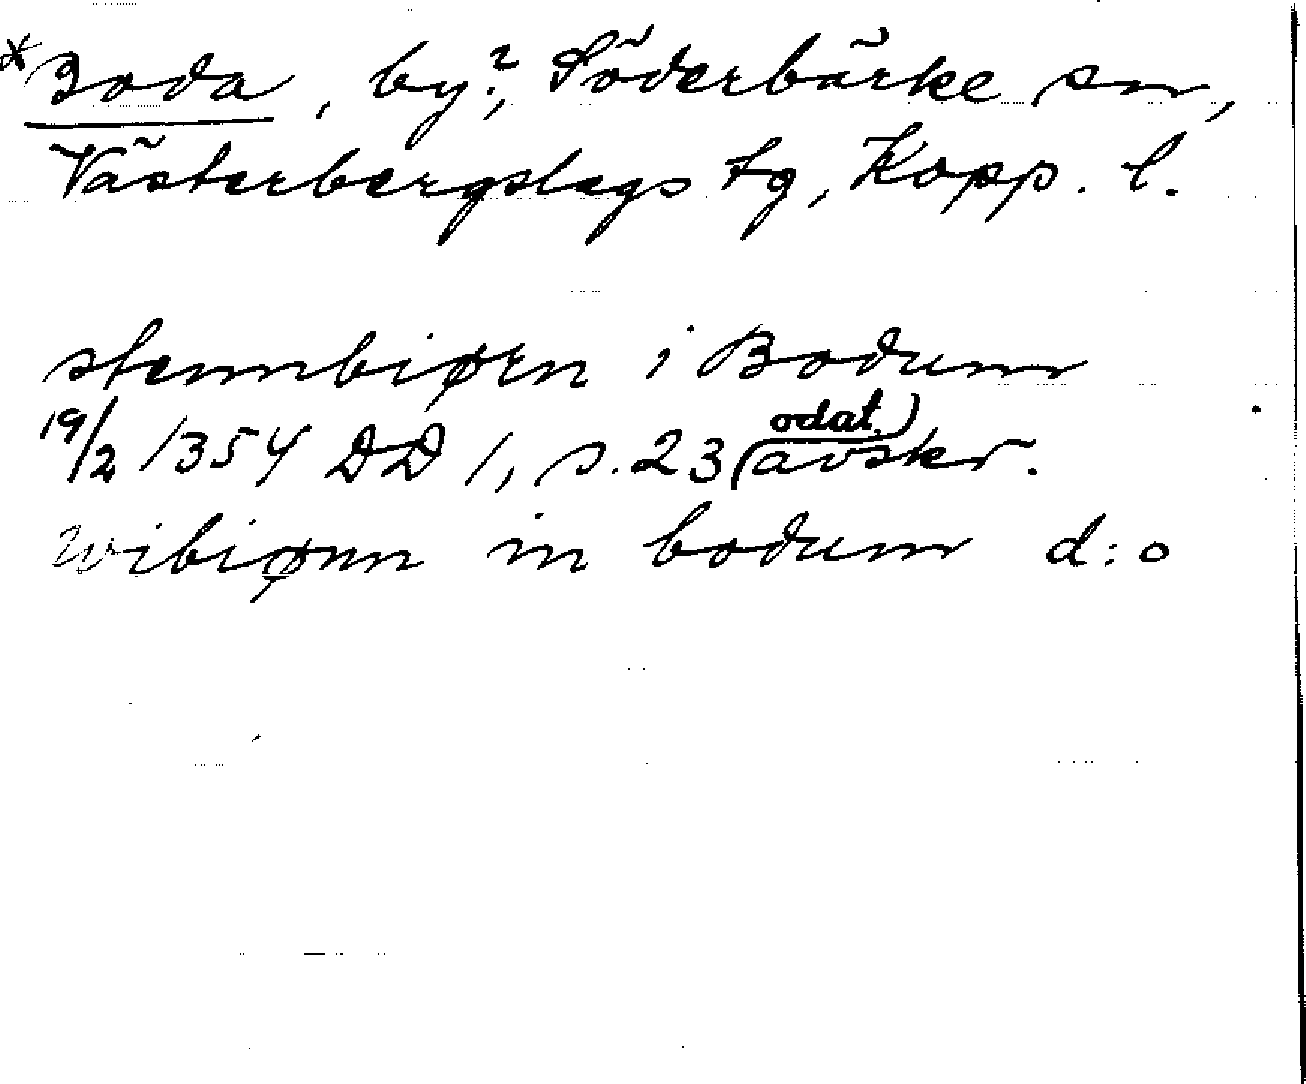 *Boda, by?, Söderbärke sn,
Västerbergslags tg, Kopp. l.
stennbiørn i Bodum
19/2 1354 DD 1, s. 23 (odat.) avskr.
wibiønn in bodum d:o